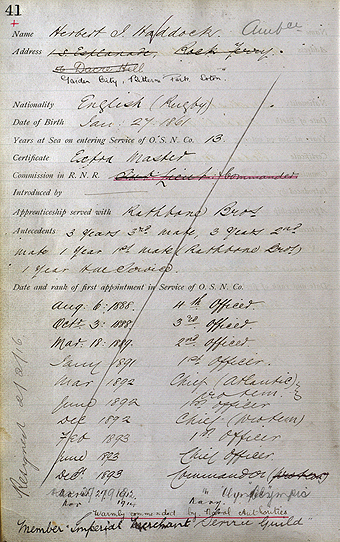 41
Name Herbert J. Haddock. Amb
Address Esplanade, Rock Ferry.
Dacre Hill
Garden City, Totton.
Nationality English (Rugby)
Date of Birth Jan: 27. 1861
Years at Sea on entering Service of O. S. N. Co. 13.
Certificate Extra Master
Commission in R. N. R. Lieut Commander
Introduced by
Apprenticeship served with Rathbone Bros
Antecedents 3 years 3rd mate, 3 years 2nd
mate 1 year 1st mate (Rathbone Bros)
1 year Service.
Date and rank of first appointment in Service of O. S. N. Co.
Aug. 6: 1888. 4th Officer.
Octr. 3: 1888 3rd Officer.
Mar. 18: 1889. 2nd Officer.
Jany 1891 1st Officer.
Mar 1892 Chief (Atlantic)
pro tem.
June 1892 1st Officer
Dec 1892 Chief (Western)
Feb 1893 1st Officer.
June 1893 Chief Officer.
Decr. 1893 Commander (Western)
1912 Olympic
Nov 1914 Navy
Warmly commended by Naval Authorities
Member "Imperial Merchant Service Guild"
Resigned 1916